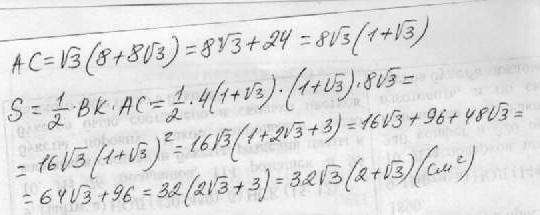 AC = √3 (8 + 8√3) = 8√3 + 24 = 8√3 (1 + √3)
S = 1/2 · BK · AC = 1/2 · 4(1 + √3) · (1 + √3) · 8√3 =
= 16√3 (1 + √3)² = 16√3 (1 + 2√3 + 3) = 16√3 + 96 + 48√3 =
= 64√3 + 96 = 32 (2√3 + 3) = 32√3 (2 + √3) (см²)